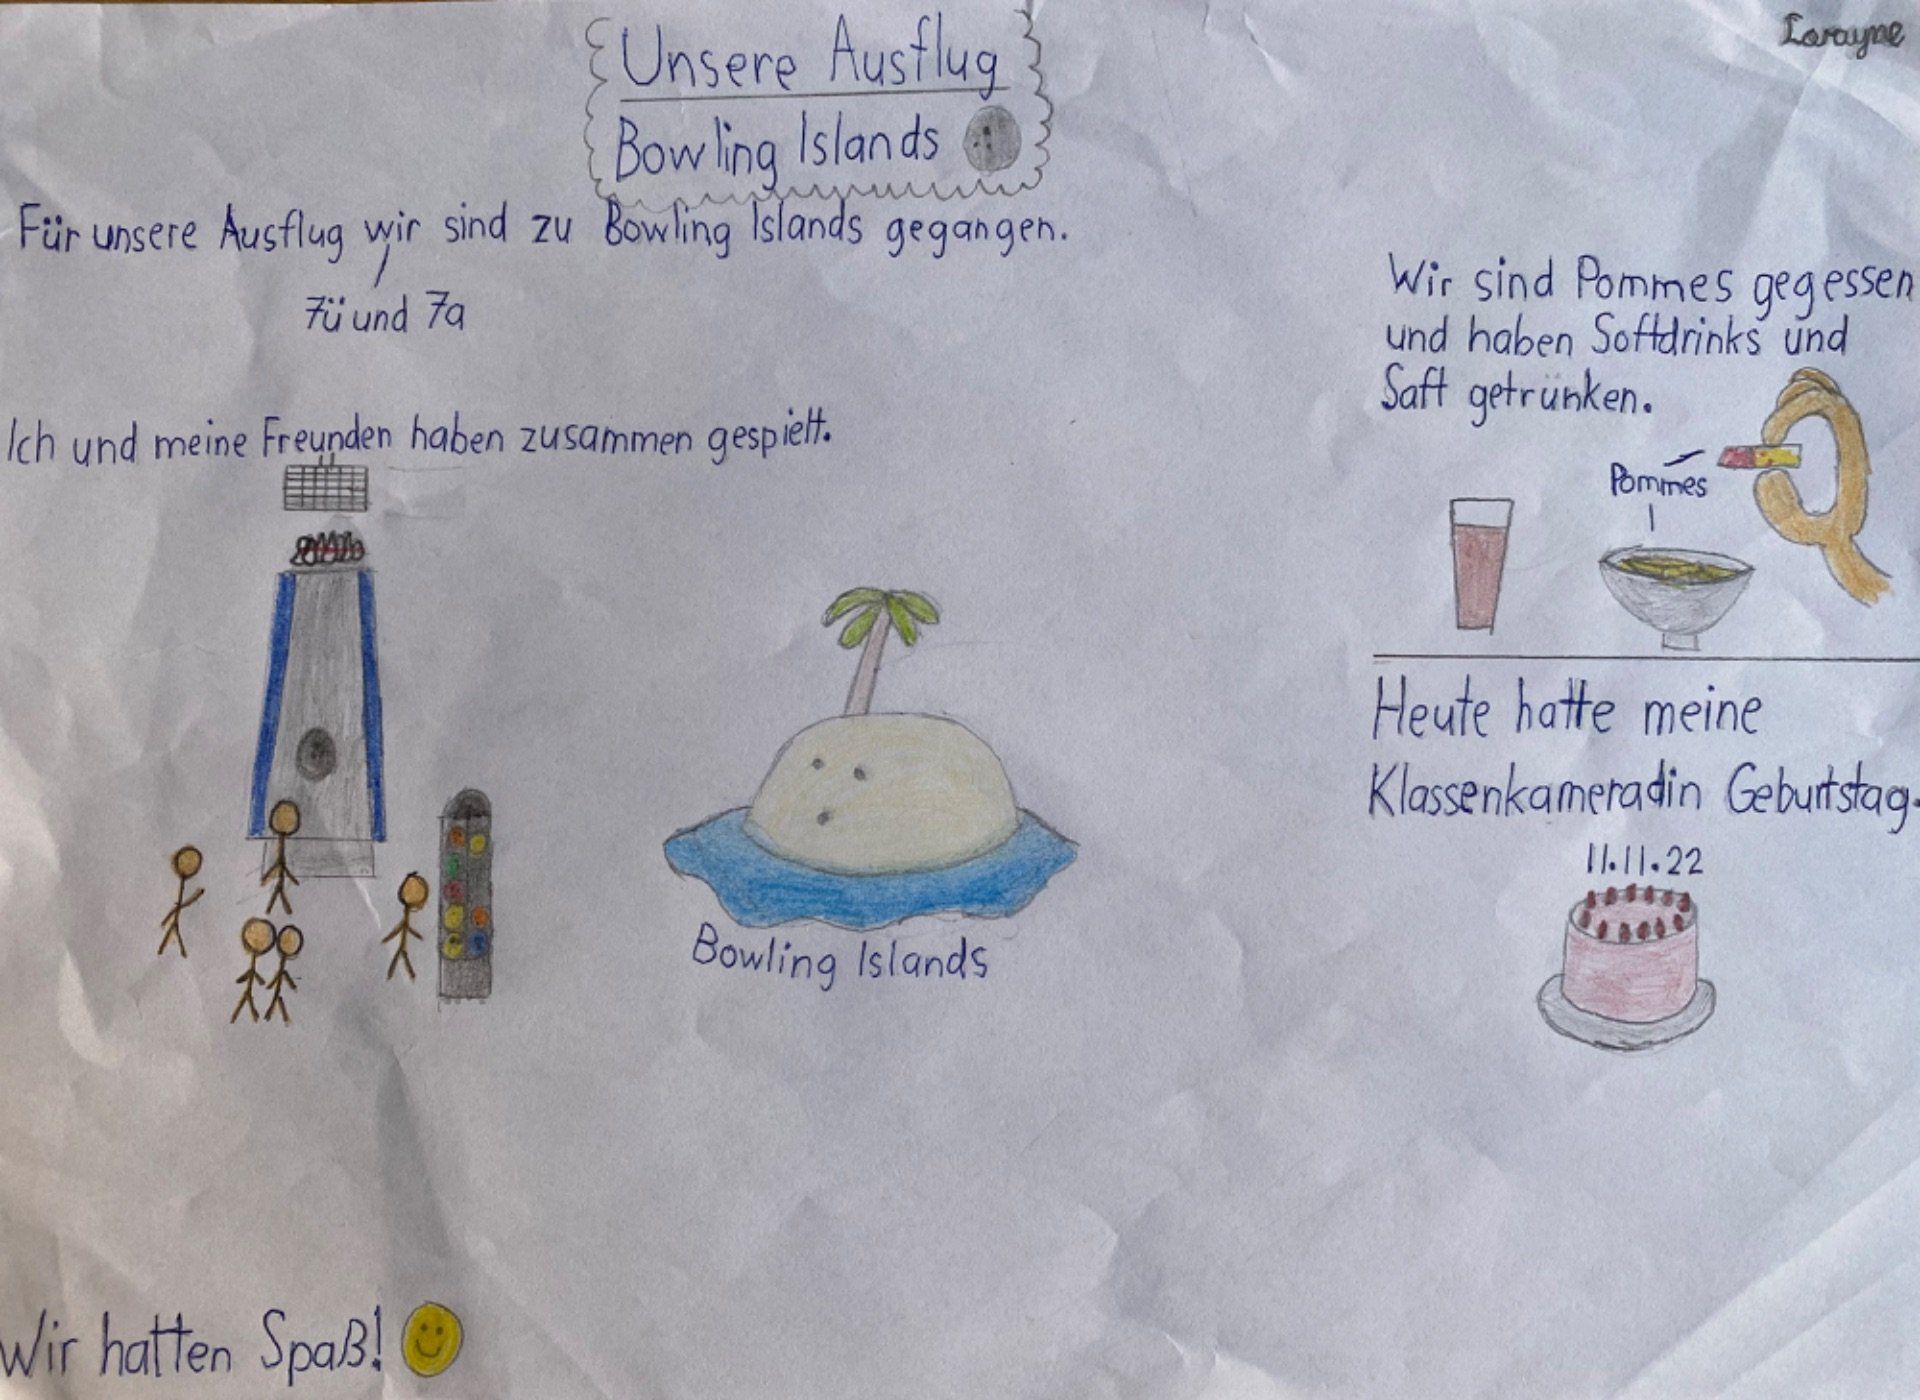 Larayne
Unsere Ausflug
Bowling Islands
Für unsere Ausflug wir sind zu Bowling Islands gegangen.
7ü und 7a
Ich und meine Freunden haben zusammen gespielt.
Bowling Islands
Wir hatten Spaß!
Wir sind Pommes gegessen
und haben Softdrinks und
Saft getrünken.
Pommes
Heute hatte meine
Klassenkameradin Geburtstag.
11.11.22